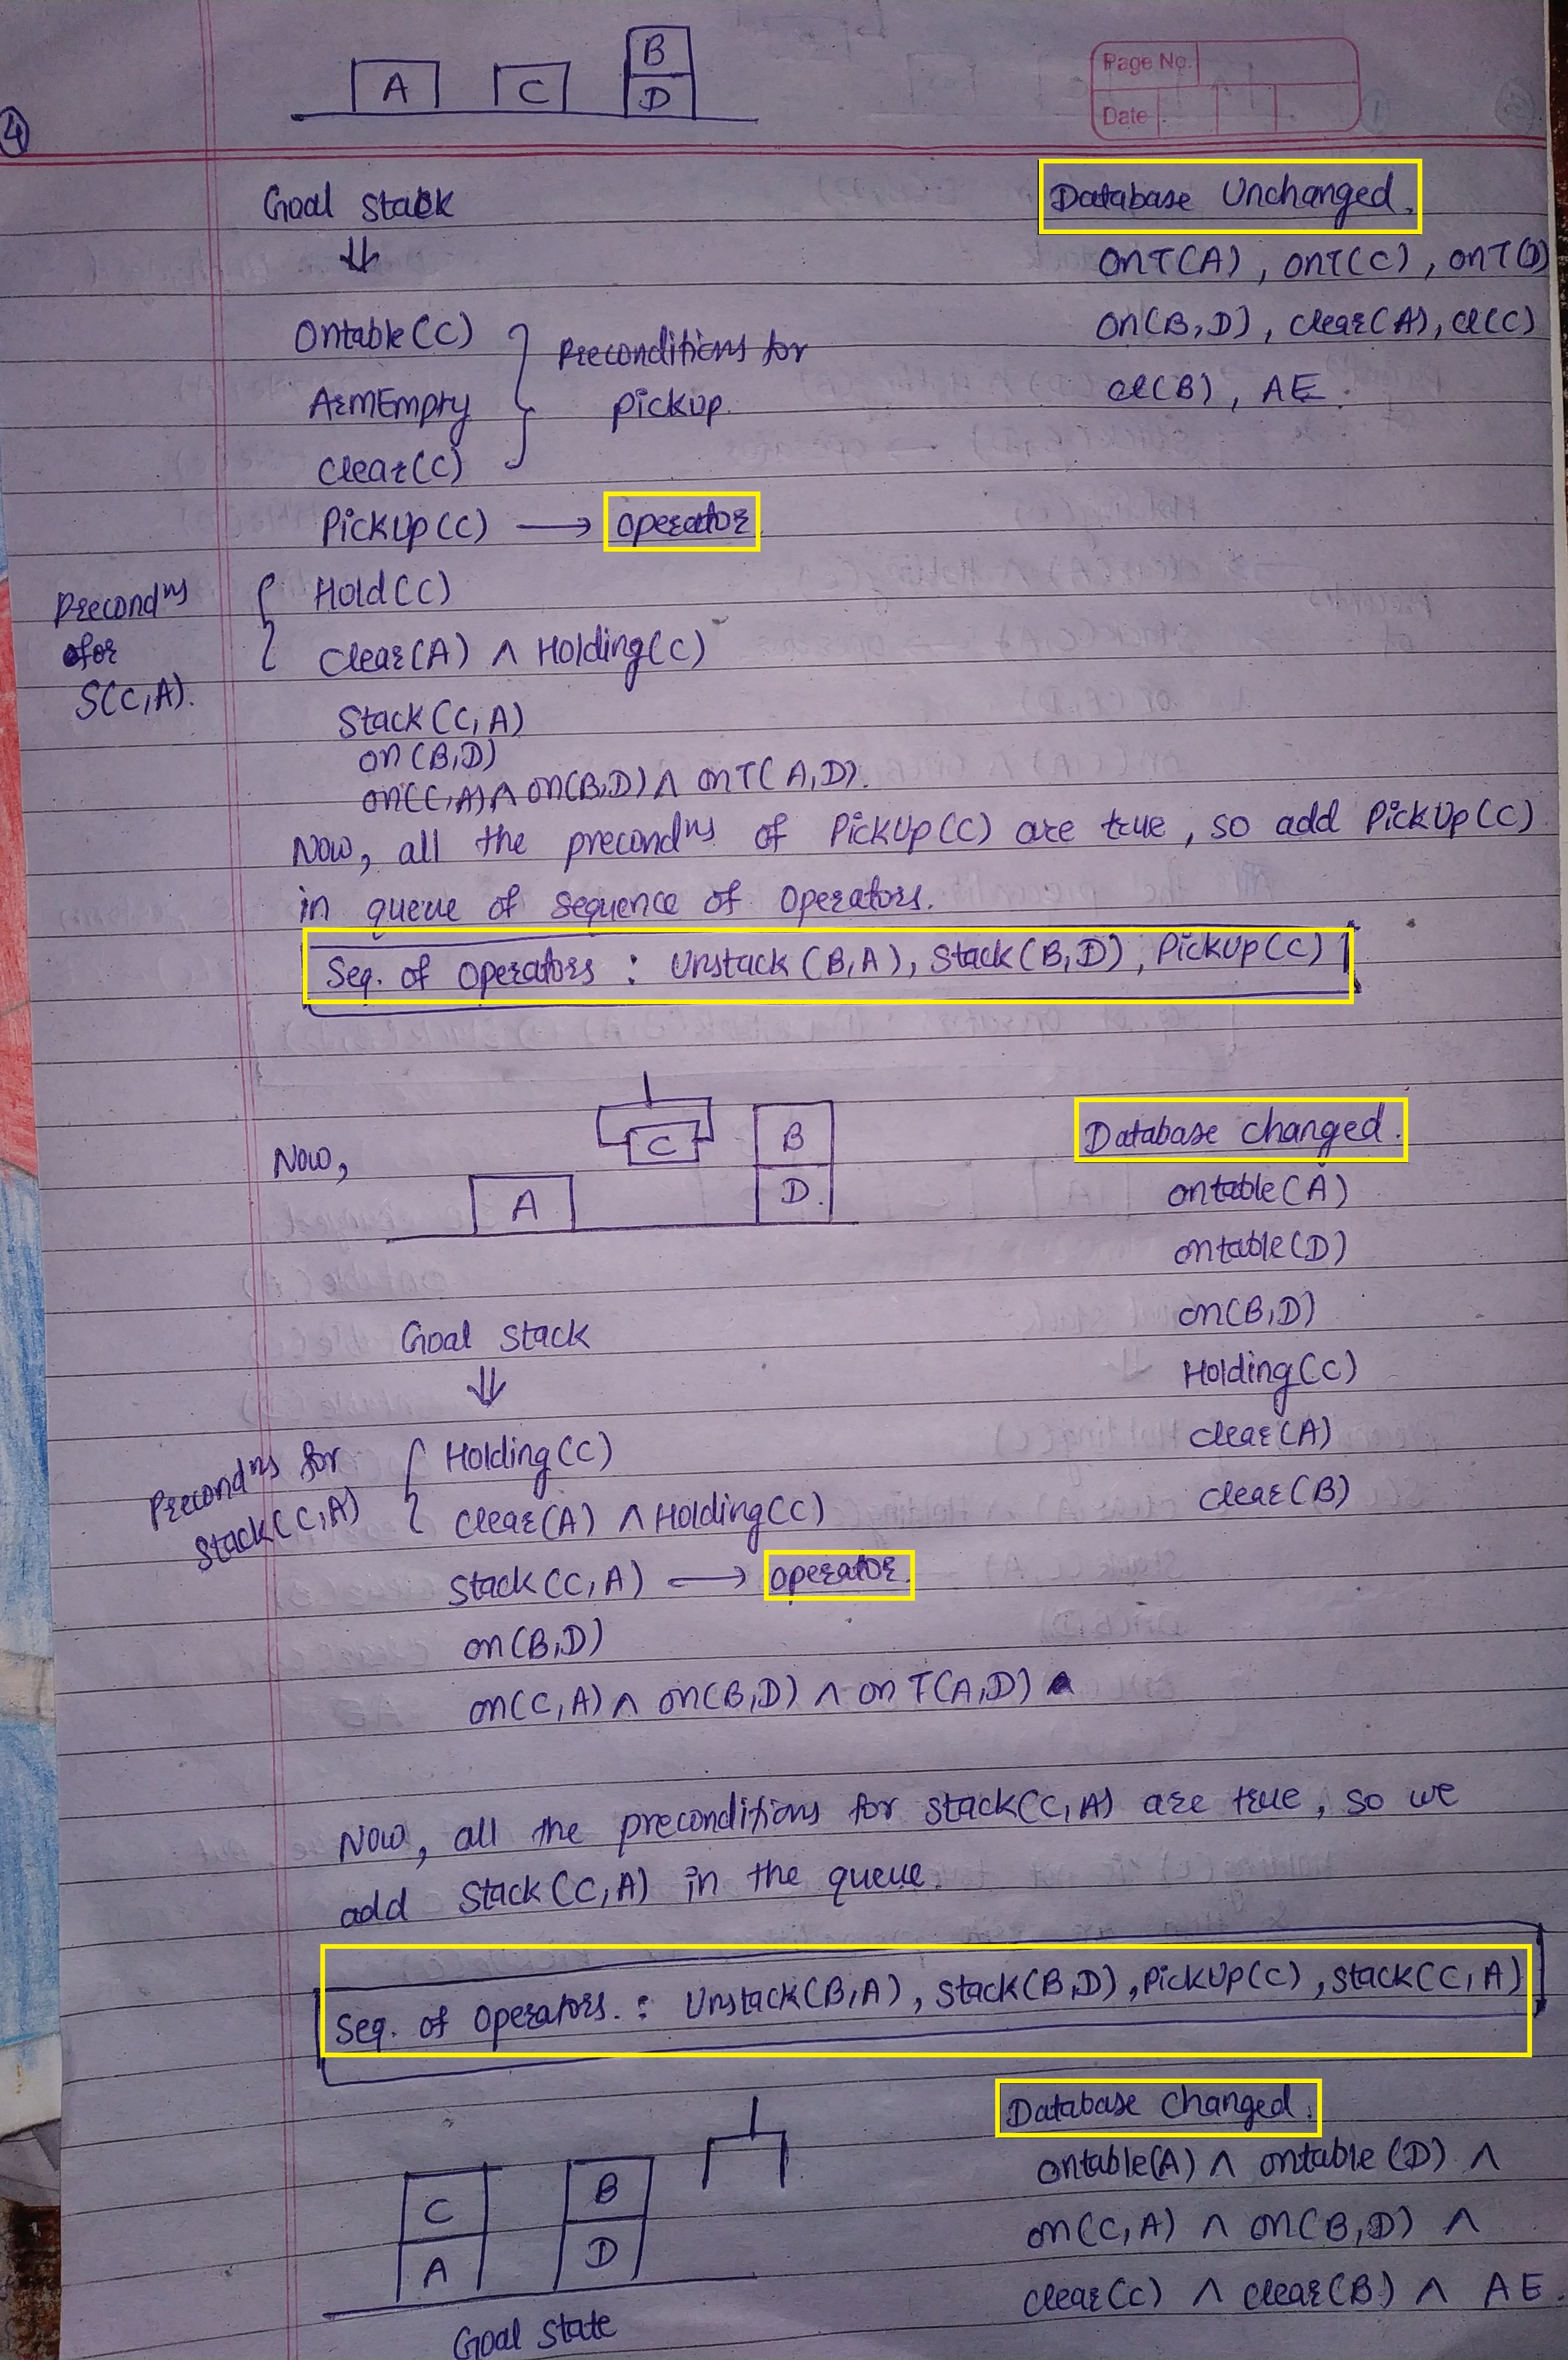 A C B D
Page No.
Date
4
Goal stack
Database Unchanged.
onT(A), onT(C), onT(D)
Ontable(C)
Preconditions for
on(B,D), clear(A), cl(C)
ArmEmpty
pickup.
cl(B), AE.
clear(C)
PickUp(C) → operator
Precondns
for
S(C,A).
Hold(C)
clear(A) ∧ Holding(C)
Stack(C,A)
on(B,D)
on(C,A) ∧ on(B,D) ∧ onT(A,D).
Now, all the precondns of PickUp(C) are true, so add PickUp(C)
in queue of sequence of operators.
Seq. of operators : Unstack(B,A), Stack(B,D), PickUp(C)
Now,
A C B D.
Database changed.
ontable(A)
ontable(D)
on(B,D)
Holding(C)
clear(A)
clear(B)
Goal stack
Precondns for
Stack(C,A)
Holding(C)
clear(A) ∧ Holding(C)
Stack(C,A) → operator.
on(B,D)
on(C,A) ∧ on(B,D) ∧ onT(A,D)
Now, all the preconditions for stack(C,A) are true, so we
add Stack(C,A) in the queue.
Seq. of operators. : Unstack(B,A), Stack(B,D), PickUp(C), Stack(C,A)
C B
A D
Goal State
Database Changed.
ontable(A) ∧ ontable(D) ∧
on(C,A) ∧ on(B,D) ∧
clear(C) ∧ clear(B) ∧ AE.